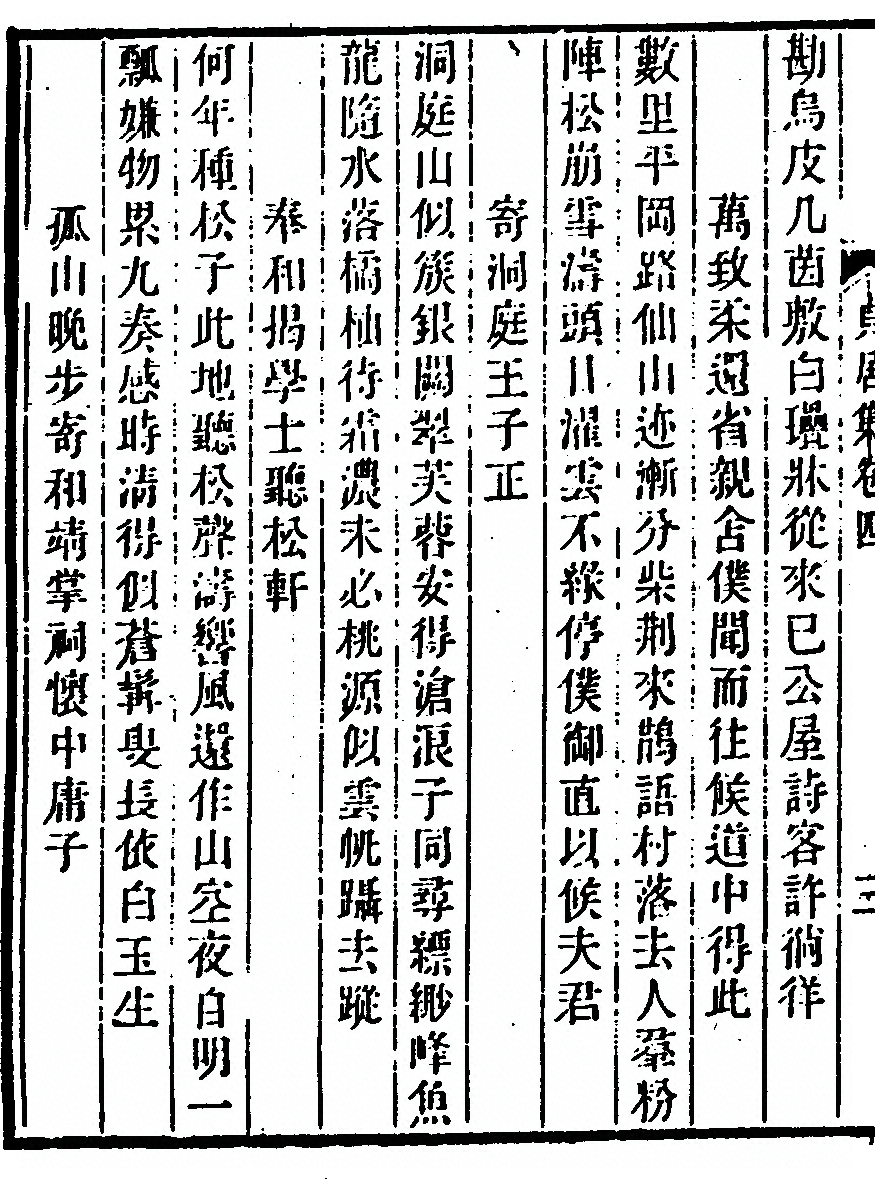 貞居集卷四
勘烏皮几茵敷白氎牀從來巳公屋詩客許徜徉
萬致柔還省親舍僕聞而往候道中得此
數里平岡路仙山迹漸分柴荆來鵲語村落去人羣粉
陣松崩雪濤頭日濯雲不緣停僕御直以候夫君
寄洞庭王子正
洞庭山似簇銀闕翠芙蓉安得滄浪子同尋縹緲峰魚
龍隨水落橘柚待霜濃未必桃源似雲帆躡去蹤
奉和揭學士聽松軒
何年種松子此地聽松聲濤響風還作山空夜自明一
瓢嫌物累九奏感時清得似蒼髯叟長依白玉生
孤山晚步寄和靖掌祠懷中庸子